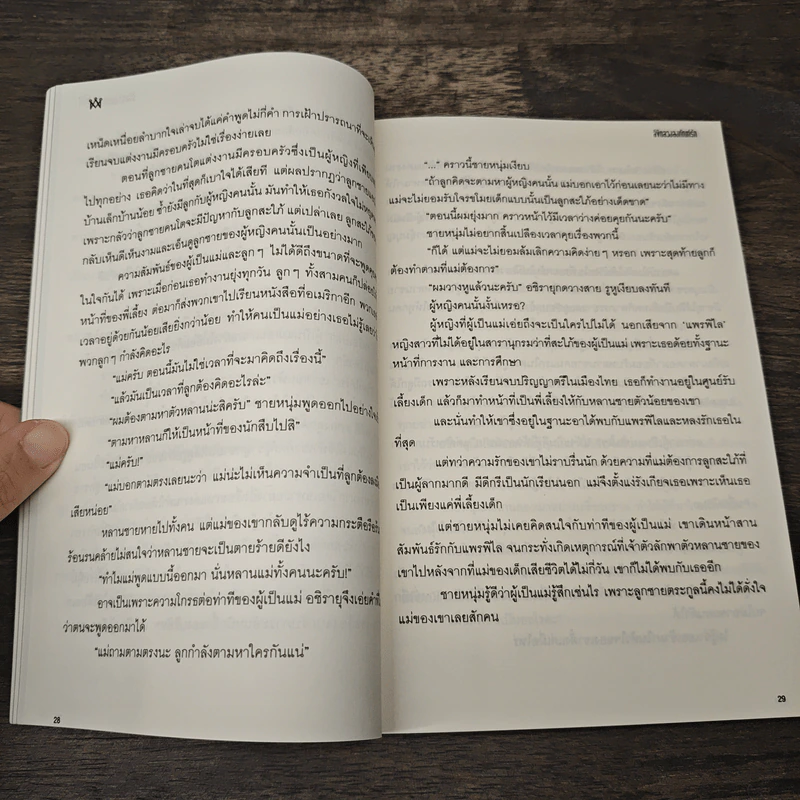 เหน็ดเหนื่อยลำบากใจเล่าจบได้แค่คำพูดไม่กี่คำ การเฝ้าปรารถนาที่จะ
เรียนจบแต่งงานมีครอบครัวไม่ใช่เรื่องง่ายเลย
ตอนที่ลูกชายคนโตแต่งงานมีครอบครัวซึ่งเป็นผู้หญิงที่
ไปทุกอย่าง เธอคิดว่าในที่สุดก็เบาใจได้เสียที แต่ผลปรากฏว่าลูกชาย
บ้านเล็กบ้านน้อย ซ้ำยังมีลูกกับผู้หญิงคนนั้น มันทำให้เธอกังวลใจไม่
เพราะกลัวว่าลูกชายคนโตจะมีปัญหากับลูกสะใภ้ แต่เปล่าเลย ลูกสะใภ้
กลับเห็นดีเห็นงามและเอ็นดูลูกชายของผู้หญิงคนนั้นเป็นอย่างมาก
ความสัมพันธ์ของผู้เป็นแม่และลูกๆ ไม่ได้ดีถึงขนาดที่จะพูดคุย
ในใจกันได้ เพราะเมื่อก่อนเธอทำงานยุ่งทุกวัน ลูกๆ ทั้งสามคนก็ปล่อย
หน้าที่ของพี่เลี้ยง ต่อมาก็ส่งพวกเขาไปเรียนหนังสือที่อเมริกาอีก พวก
เวลาอยู่ด้วยกันน้อยเสียยิ่งกว่าน้อย ทำให้คนเป็นแม่อย่างเธอไม่รู้เลยว่า
พวกลูกๆ กำลังคิดอะไร
“แม่ครับ ตอนนี้มันไม่ใช่เวลาที่จะมาคิดถึงเรื่องนี้”
“แล้วมันเป็นเวลาที่ลูกต้องคิดอะไรล่ะ”
“ผมต้องตามหาตัวหลานน่ะสิครับ” ชายหนุ่มพูดออกไปอย่าง
“ตามหาหลานก็ให้เป็นหน้าที่ของนักสืบไปสิ”
“แม่ครับ!”
“แม่บอกตามตรงเลยนะว่า แม่น่ะไม่เห็นความจำเป็นที่ลูกต้อง
เสียหน่อย”
หลานชายหายไปทั้งคน แต่แม่ของเขากลับดูไร้ความกระตือรือร้น
ร้อนรนคล้ายไม่สนใจว่าหลานชายจะเป็นตายร้ายดียังไง
“ทำไมแม่พูดแบบนี้ออกมา นั่นหลานแม่ทั้งคนนะครับ!”
อาจเป็นเพราะความโกรธต่อท่าทีของผู้เป็นแม่ อชิรายุจึงเอ่ย
ว่าตนจะพูดออกมาได้
“แม่ถามตามตรงนะ ลูกกำลังตามหาใครกันแน่”
28
“...” คราวนี้ชายหนุ่มเงียบ
“ถ้าลูกคิดจะตามหาผู้หญิงคนนั้น แม่บอกเอาไว้ก่อนเลยนะว่าไม่มีทาง
แม่จะไม่ยอมรับโจรขโมยเด็กแบบนั้นเป็นลูกสะใภ้อย่างเด็ดขาด”
“ตอนนี้ผมยุ่งมาก คราวหน้าไว้มีเวลาว่างค่อยคุยกันนะครับ”
ชายหนุ่มไม่อยากสิ้นเปลืองเวลาคุยเรื่องพวกนี้
“ก็ได้ แต่แม่จะไม่ยอมล้มเลิกความคิดง่ายๆ หรอก เพราะสุดท้ายลูกก็
ต้องทำตามที่แม่ต้องการ”
“ผมวางหูแล้วนะครับ” อชิรายุกดวางสาย รูหูเงียบลงทันที
ผู้หญิงคนนั้นงั้นเหรอ?
ผู้หญิงที่ผู้เป็นแม่เอ่ยถึงจะเป็นใครไปไม่ได้ นอกเสียจาก ‘แพรพิไล’
หญิงสาวที่ไม่ได้อยู่ในสารานุกรมว่าที่สะใภ้ของผู้เป็นแม่ เพราะเธอด้อยทั้งฐานะ
หน้าที่การงาน และการศึกษา
เพราะหลังเรียนจบปริญญาตรีในเมืองไทย เธอก็ทำงานอยู่ในศูนย์รับ
เลี้ยงเด็ก แล้วก็มาทำหน้าที่เป็นพี่เลี้ยงให้กับหลานชายตัวน้อยของเขา
และนั่นทำให้เขาซึ่งอยู่ในฐานะอาได้พบกับแพรพิไลและหลงรักเธอใน
ที่สุด
แต่ทว่าความรักของเขาไม่ราบรื่นนัก ด้วยความที่แม่ต้องการลูกสะใภ้ที่
เป็นผู้ลากมากดี มีดีกรีเป็นนักเรียนนอก แม่จึงตั้งแง่รังเกียจเธอเพราะเห็นเธอ
เป็นเพียงแค่พี่เลี้ยงเด็ก
แต่ชายหนุ่มไม่เคยคิดสนใจกับท่าทีของผู้เป็นแม่ เขาเดินหน้าสาน
สัมพันธ์รักกับแพรพิไล จนกระทั่งเกิดเหตุการณ์ที่เจ้าตัวลักพาตัวหลานชายของ
เขาไปหลังจากที่แม่ของเด็กเสียชีวิตได้ไม่กี่วัน เขาก็ไม่ได้พบกับเธออีก
ชายหนุ่มรู้ดีว่าผู้เป็นแม่รู้สึกเช่นไร เพราะลูกชายตระกูลนี้คงไม่ได้ดั่งใจ
แม่ของเขาเลยสักคน
29